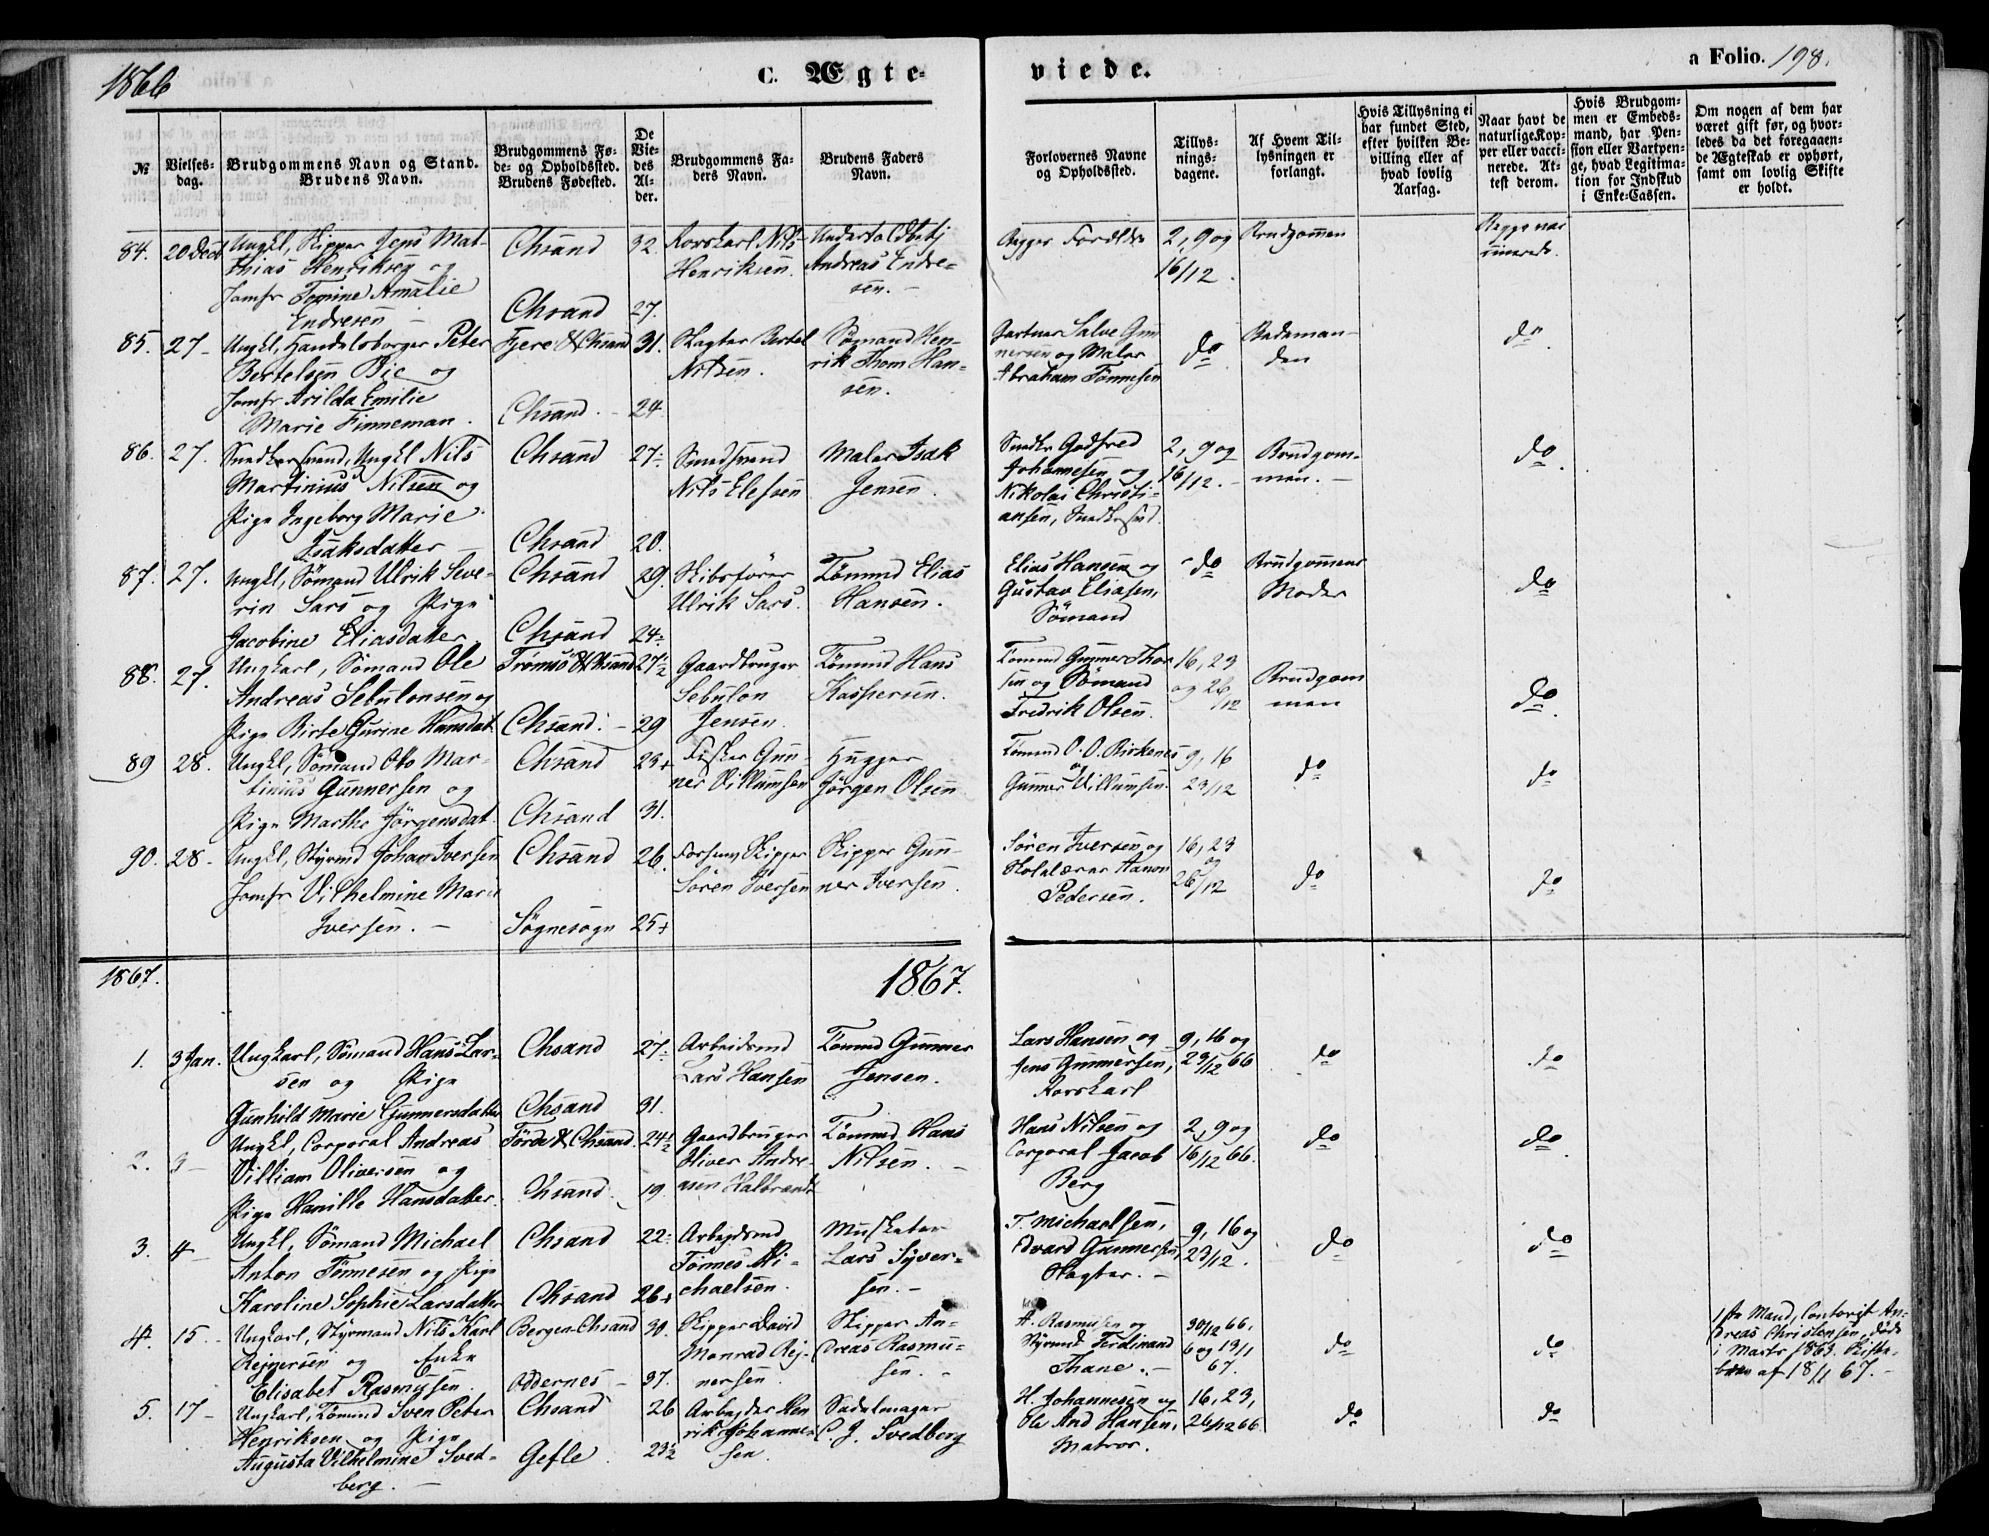 1866
C. Ægte-
viede.
a Folio. 198.
№
Vielses-
dag.
Brudgommens Navn og Stand.
Brudens Navn.
Brudgommens Fø-
de- og Opholdssted.
Brudens Fødested.
De
Vie-
des
Al-
der.
Brudgommens Fa-
ders Navn.
Brudens Faders
Navn.
Forlovernes Navne
og Opholdssted.
Tillys-
nings-
dagene.
Af Hvem Til-
lysningen er
forlangt.
Hvis Tillysning ei
har fundet Sted,
efter hvilken Be-
villing eller af
hvad lovlig
Aarsag.
Naar havt de
naturlige Kop-
per eller vacci-
nerede. At-
test derom.
Hvis Brudgom-
men er Embeds-
mand, har Pen-
sion eller Vartpen-
ge, hvad Legitima-
tion for Indskud
i Enke-Cassen.
Om nogen af dem har
været gift før, og hvor-
ledes da det foregaaen-
de Ægteskab er ophørt,
samt om lovlig Skifte
er holdt.
84. 20 Dec Ungkl, Skipper Jens Mat-
thias Henriksen og
Jomfr Tomine Amalie
Endresen –
Chsand 32.
Chsand 27.
Rorskarl Nils
Henriksen.
Andreas Endre-
sen. –
Begges Forældre
2, 9 og
16/12.
Brudgommen
85. 27 – Ungkl, Handelsborger Peter
Bertelsen Bie og
Jomfr Arilda Emilie
Marie Finneman.
Fjere & Chsand 31.
Chsand. – 24
Slagter Bertel
Nilsen.
Sømand Hen-
rik Thom Han-
sen.
Gartner Salve Gun
nersen og Maler
Abraham Tönnesen
do
do
86. 27. Snedkersvend, Ungkl Nils
Martinius Nilsen og
Pige Ingeborg Marie
Isaksdatter
Chsand 27-
Chsand 20.
Smedsvend
Nils Elefsen
Maler Isak
Jensen.
Snedkr Godfred
Johannesen og
Nikolai Christi-
ansen, Snedkersvd.
2, 9 og
16/12. –
Brudgom-
men. –
do
87. 27. Ungkl, Sömand Ulrik Seve-
rin Sars og Pige
Jacobine Eliasdatter
Chsand 29.
Chsand 24-
Skibsfører
Ulrik Sars.
Tömmd Elias
Hansen.
Elias Hansen og
Gustav Eliasen,
Sömand
do
Brudgommens
Moder
do
88. 27. Ungkarl, Sømand Ole
Andreas Sebulonsen og
Pige Birte Gurine Hansdat.
Tromsö & Chsand 27½
Chsand. – 29
Gaardbruger
Sebulon
Jensen.
Tömmd Hans
Kaspersen.
Tømmd Gunner Thor
sen og Sömand
Fredrik Olsen.
16, 23
og 26/12
Brudgom
men
do
89 28. Ungkl, Sømand Otto Mar-
tinius Gunnersen og
Pige Marthe Jörgensdat.
Chsand 23+
Chsand 31.
Fisker Gun-
ner Villumsen
Hugger
Jörgen Olsen
Tömmd O. O. Birkenes
og
Gunner Villumsen.
9, 16
23/12
do
do
90. 28 – Ungkl, Styrmd Johan Iversen
Jomfr Vilhelmine Marie
Iversen. –
Chsand 26.
Sögnesogn 25+
Sören Iversen
Skipper Gun-
ner Iversen.
Sören Iversen og
Skolelærer Aanon
Pedersen.
16, 23
og
26/12
do
do
1867.
1867.
1. 3 Jan. Ungkarl, Sømand Hans Lar-
sen og Pige
Gunhild Marie Gunnersdatter
Chsand 27-
Chsand 31.
Arbeidsmd
Lars Hansen
Tömmd Gunner
Jensen.
Lars Hansen og
Jens Gunnersen,
Rorskarl
9, 16 og
23/12 66
do
do
2. 3 – Ungkl, Corporal Andreas
Villiam Oliversen og
Pige Hanille Hansdatter.
Förde & Chsand. 24½
Chsand. 19.
Gaardbruger
Oliver Andre-
asen Halbrendt
Tömmd Hans
Nilsen. –
Hans Nilsen og
Corporal Jacob
Berg
2, 9 og
16/12 66.
do
do
3. 4 – Ungkl, Sømand Michael
Anton Tönnesen og Pige
Karoline Sophie Larsdatter
Chsand 22-
Chsand 26+
Arbeidsmd
Tönnes Mi-
chaelsen.
Musketer
Lars Syver-
sen. –
T. Michaelsen,
Edvard Gunnersen,
Slagter. –
9, 16 og
23/12.
do
do
4. 15. – Ungkarl, Styrmand Nils Karl
Rejnersen og Enke
Elisabet Rasmussen
Bergen Chsand 30.
Oddernes – 37.
Skipper David
Monrad Rej-
nersen.
Skipper An-
dreas Rasmu-
sen. –
A. Rasmusen og
Styrmd Ferdinand
Thane. –
30/12 66,
6 og 13/1
67.
do
do
1ste Mand, Contorist An-
dreas Christensen, døde
i Marts 1863. Skifte-
brev af 18/1 67. –
5. 17 – Ungkarl, Tömmd Sven Peter
Henriksen og Pige
Augusta Vilhelmine Sved-
berg. –
Chsand 26
Gefle. 23½
Arbejder Hen
rik Johanne-
sen.
Sadelmager
C. J. Svedberg
H. Johannesen og
Ole And Hansen,
Matros.
16, 23,
26/12 66
do
do